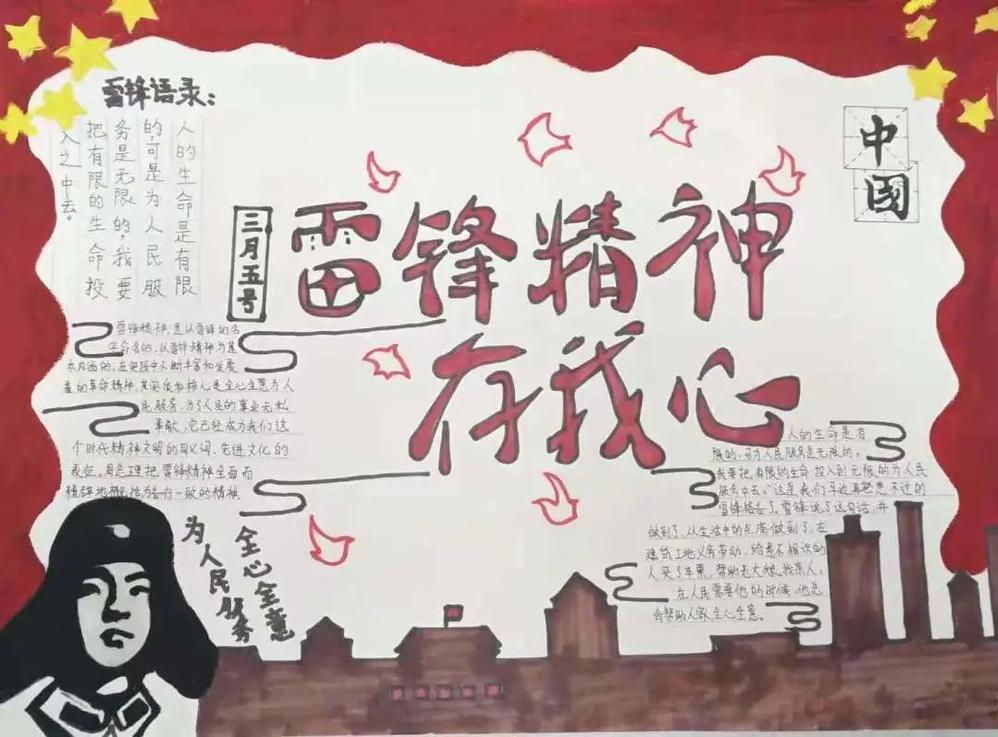 雷锋语录：
人的生命是有限
的，可是为人民服
务是无限的，我要
把有限的生命投
入之中去。
中
國
三月五号
雷锋精神
在我心
雷锋精神，是以雷锋的名
字命名的、以雷锋精神为基
本内涵的、在实践中不断丰富和发展
着的革命精神，其实质和核心是全心全意为人
民服务，为了人民的事业无私
奉献，它已经成为我们这
个时代精神文明的同义词、先进文化的
表征。周总理把雷锋精神全面而
精辟地概括为言行一致的精神
人的生命是有
限的，可为人民服务是无限的，
我要把有限的生命投入到无限的为人民
服务中去。"这是我们耳边再熟悉不过的
雷锋格言了，雷锋说了这句话，并
做到了，从生活中的点滴做到了，在
建筑工地义务劳动，给素不相识的
人买了车票，帮助老大娘找亲人，
在人民需要他的时候，他总
会帮助人家，全心全意。
全心全意
为人民服务